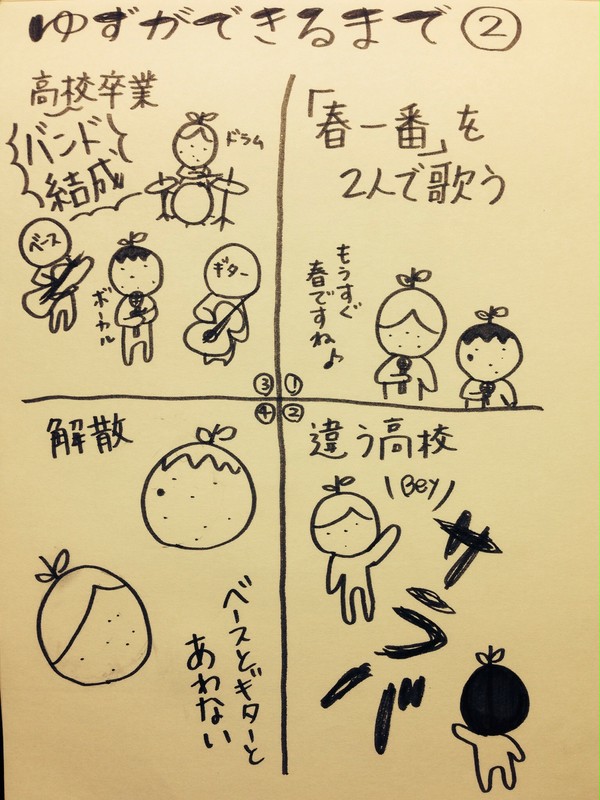 ゆずができるまで②
「春一番」を
2人で歌う
もうすぐ
春ですね♪
①
②
違う高校
\Bey/
サラバ
③
高校卒業
バンド
結成
ドラム
ベース
ボーカル
ギター
④
解散
ベースとギターと
あわない